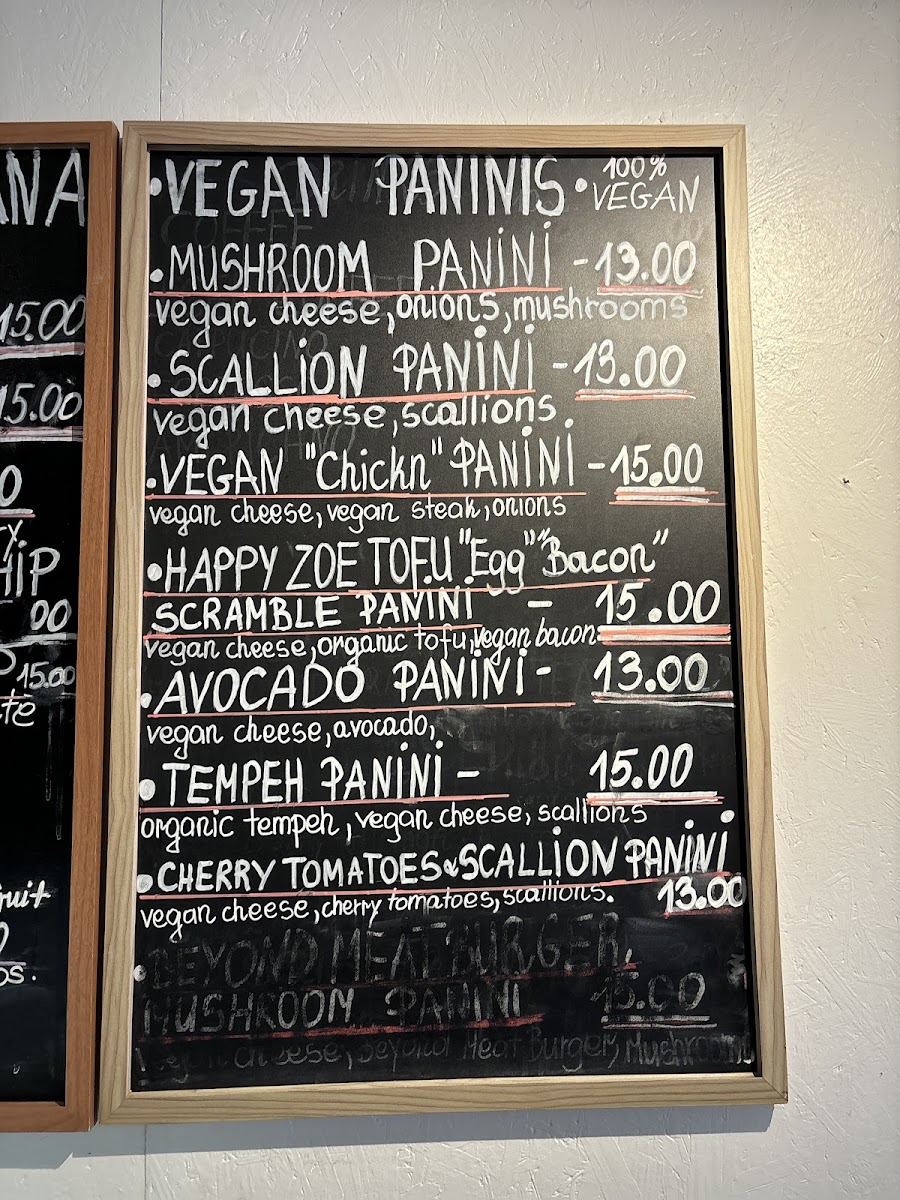 ANA
15.00
15.00
0
ry.
HIP
00
15.00
te
fruit
os.
•VEGAN PANINIS• 100% VEGAN
•MUSHROOM PANINI -13.00
vegan cheese,onions,mushrooms
•SCALLION PANINI -13.00
vegan cheese,scallions
•VEGAN "Chickn" PANINI -15.00
vegan cheese,vegan steak,onions
•HAPPY ZOE TOFU "Egg" "Bacon"
SCRAMBLE PANINI - 15.00
vegan cheese,organic tofu,vegan bacon
•AVOCADO PANINI- 13.00
vegan cheese,avocado,
•TEMPEH PANINI - 15.00
organic tempeh, vegan cheese, scallions
•CHERRY TOMATOES&SCALLION PANINI
vegan cheese,cherry tomatoes,scallions. 13.00
•BEYOND MEAT BURGER,
MUSHROOM PANINI 15.00
vegan cheese, Beyond Meat Burger, Mushrooms